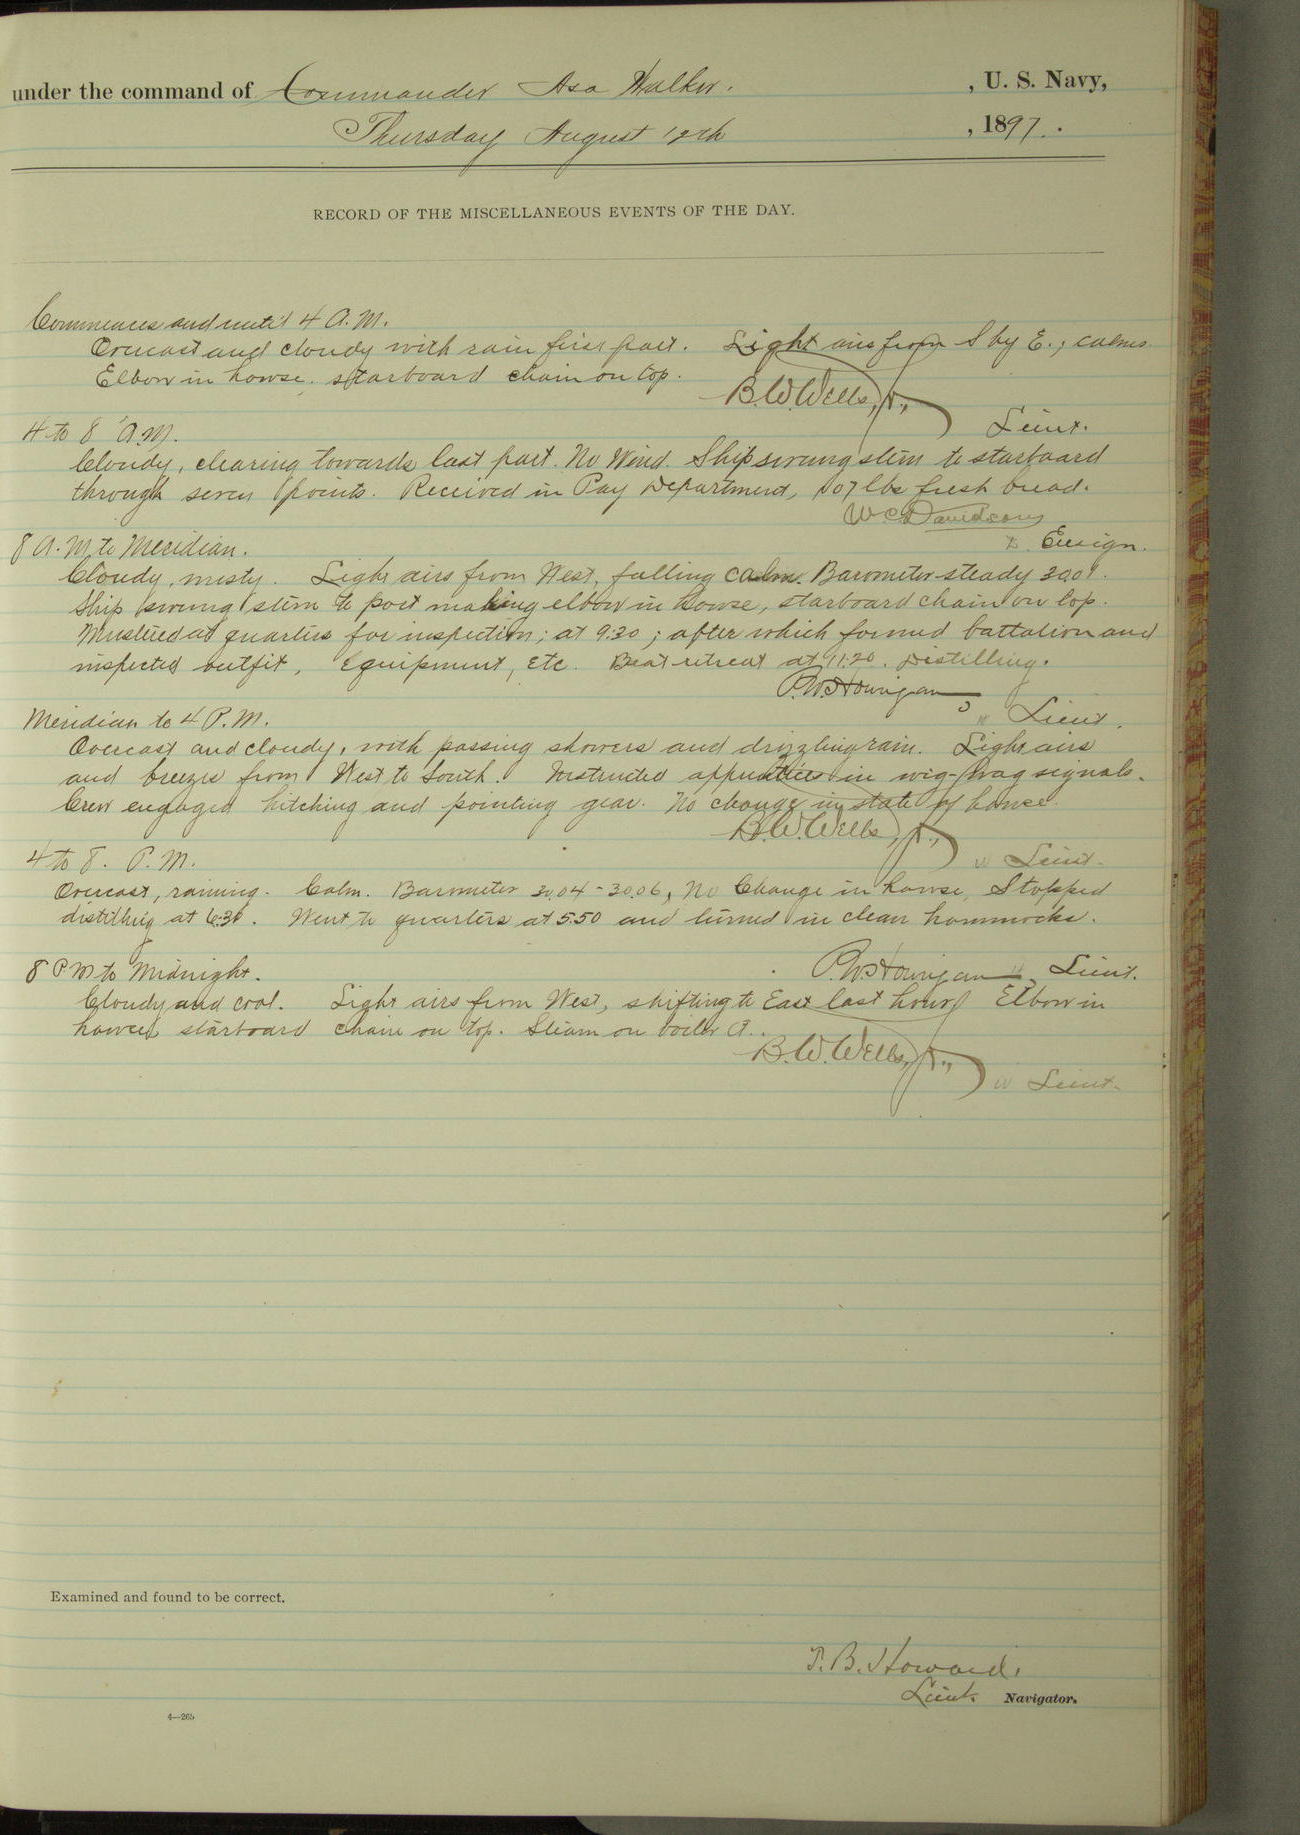 under the command of Commander Asa Walker. , U. S. Navy,
Thursday August 12th , 1897.
RECORD OF THE MISCELLANEOUS EVENTS OF THE DAY.
Commences and until 4 A.M.
Overcast and cloudy with rain first part. Light airs from S by E.; calms.
Elbow in hawse. starboard chain on top.
B.W. Wells, Jr.,
Lieut.
4 to 8 A.M.
Cloudy, clearing towards last part. No Wind. Ship swung stern to starboard
through seven points. Received in Pay Department, 107 lbs fresh bread.
W C Davidson
Ensign.
8 A.M to Meridian.
Cloudy, misty. Light airs from West, falling calm. Barometer steady 30.01.
Ship swung stern to port making elbow in hawse, starboard chain on top.
Mustered at quarters for inspection; at 9.30; after which formed battalion and
inspected outfit, Equipment, etc. Beat retreat at 11.20. Distilling.
P.W. Hourigan
Lieut.
Meridian to 4 P.M.
Overcast and cloudy, with passing showers and drizzling rain. Light airs
and breezes from West to South. Instructed apprentices in wig-wag signals.
Crew engaged hitching and pointing gear. No change in state of hawse.
B.W. Wells, Jr.,
Lieut.
4 to 8. P.M.
Overcast, raining. Calm. Barometer 30.04-30.06, No Change in hawse, Stopped
distilling at 6:30. Went to quarters at 5.50 and turned in clean hammocks.
8 PM to Midnight.
P.W. Hourigan Lieut.
Cloudy and cool. Light airs from West, shifting to East last hour. Elbow in
hawse, starboard chain on top. Steam on boiler A.
B.W. Wells, Jr.,
Lieut.
Examined and found to be correct.
T.B. Howard,
Lieut. Navigator.
4—265